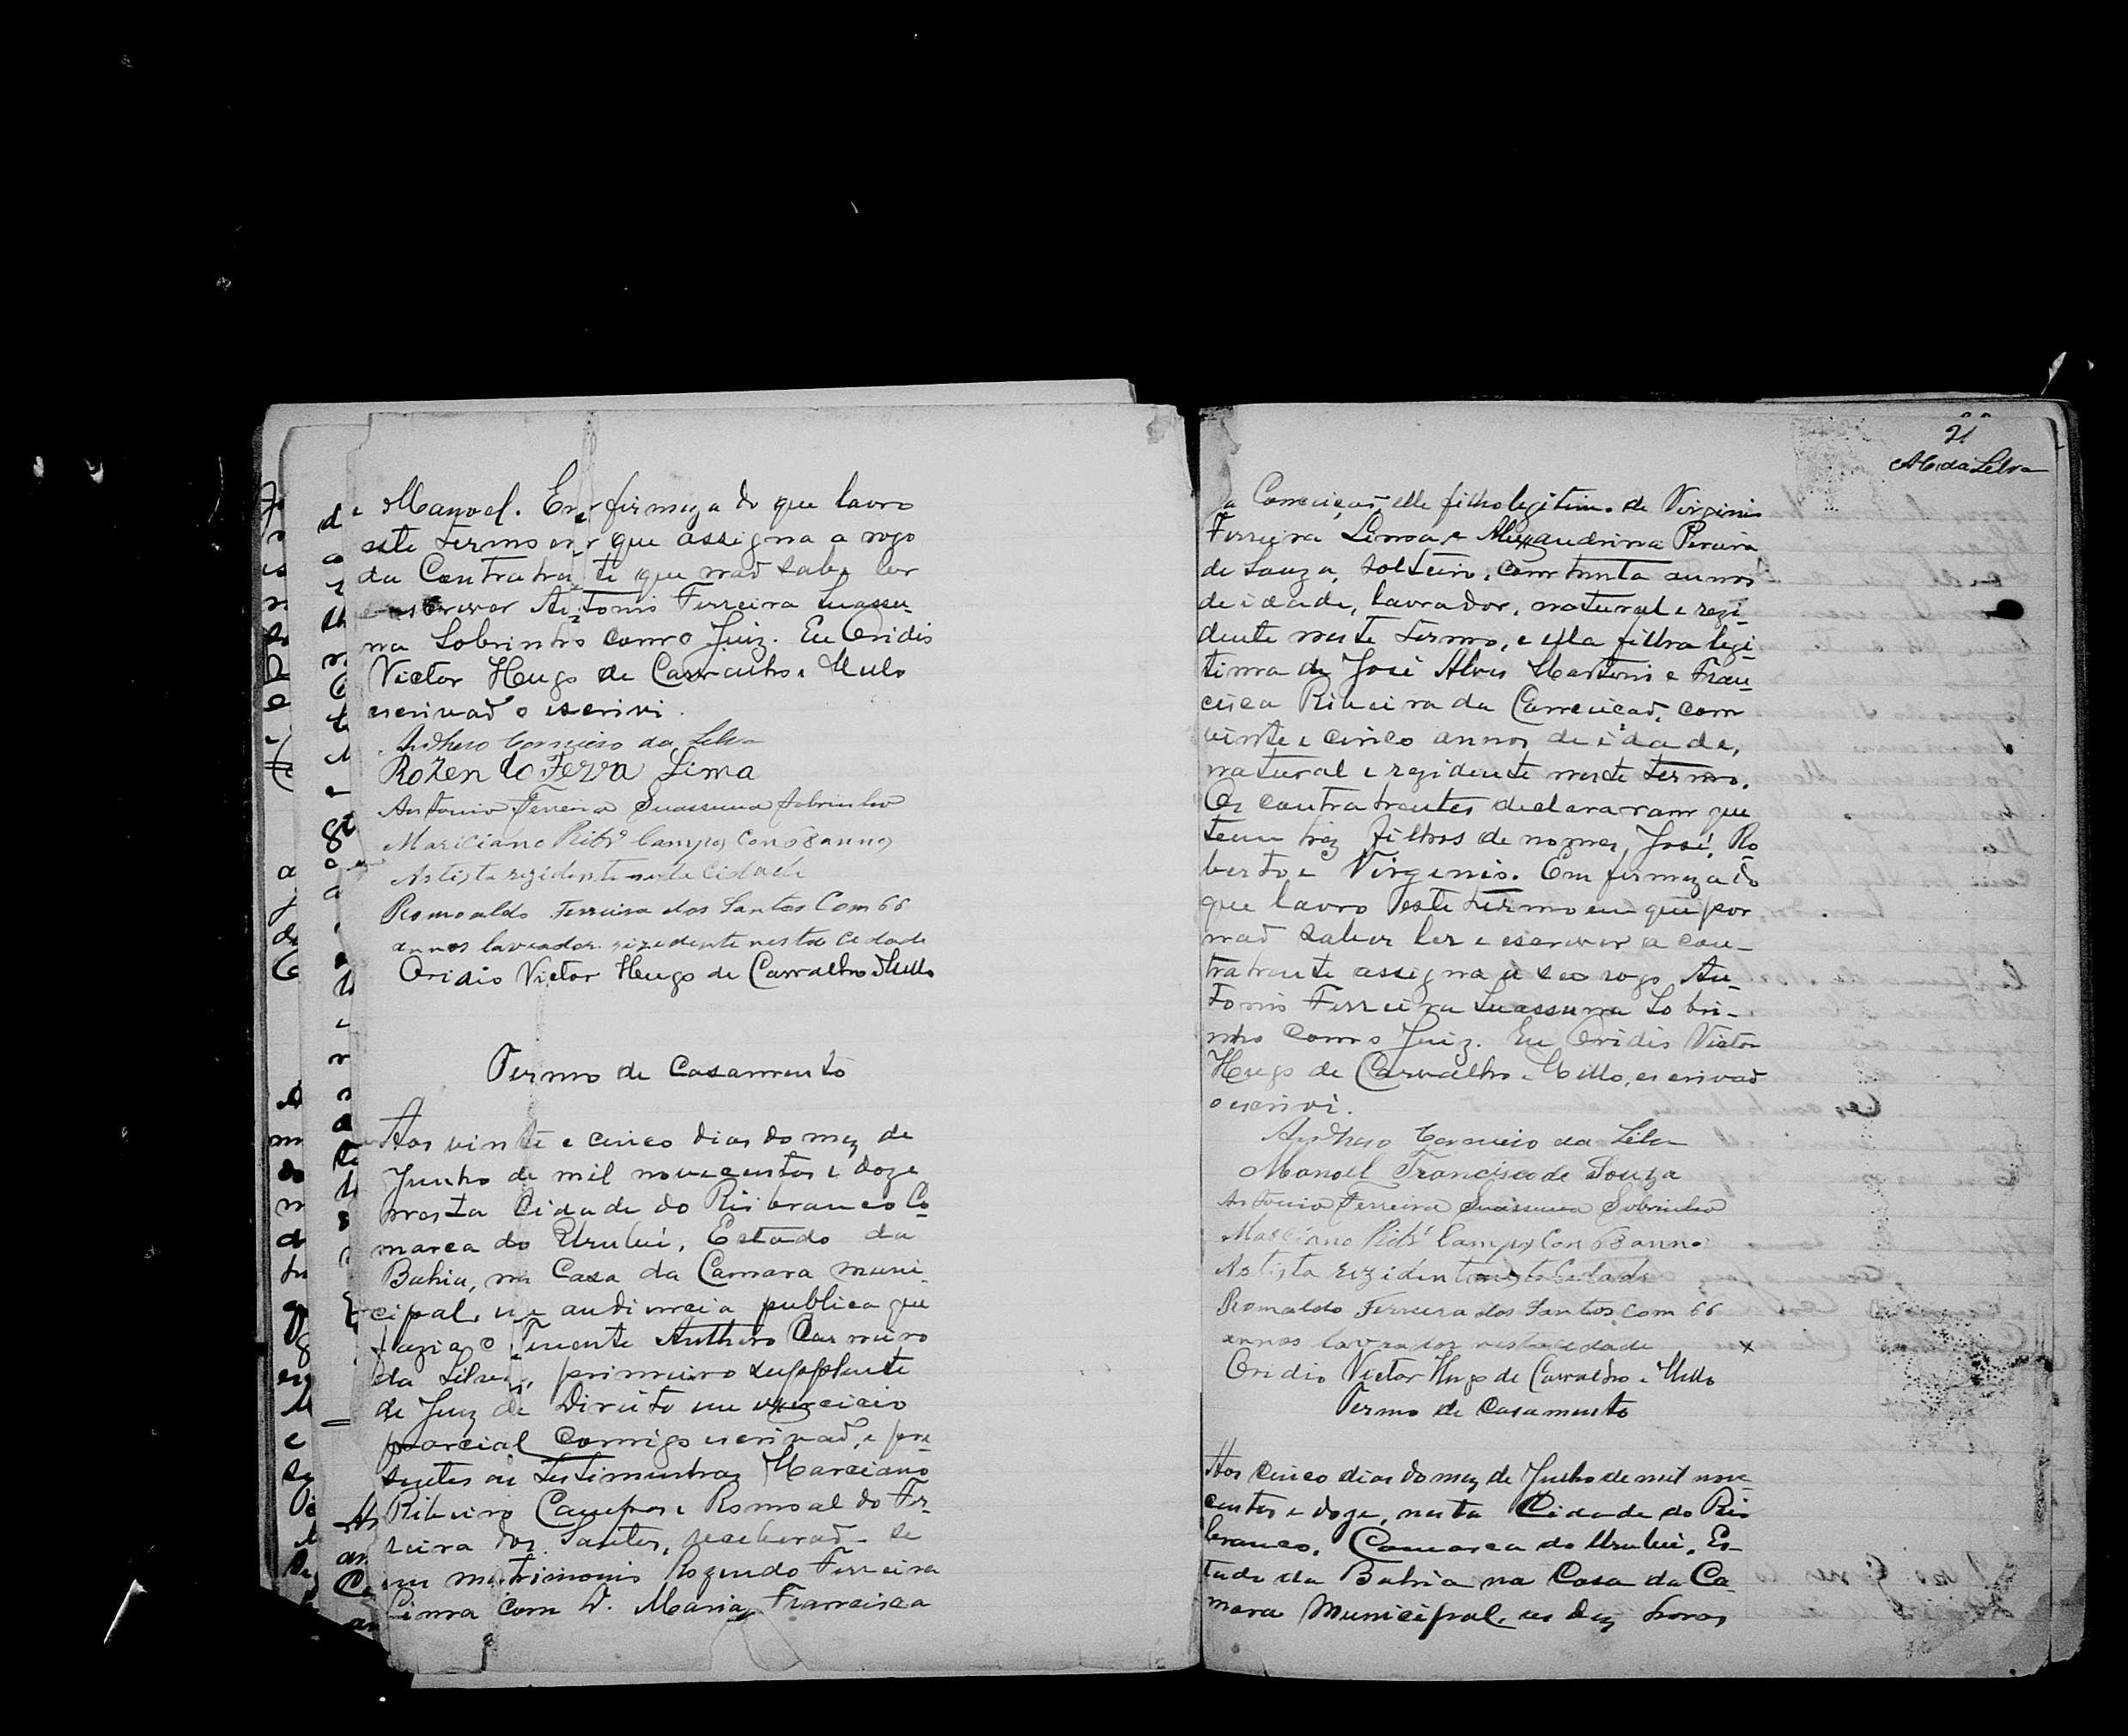 e Manoel. Em firmeza do que lavro
este termo em que assigna a rogo
da Contratrate que naõ sabe ler
e escrever Antonio Ferreira Suassu-
na Sobrinho como Juiz. Eu Ovidio
Victor Hugo de Carvalho e Mello
escrivaõ o escrivi.
Anthero Carneiro da Silva
Rozendo Ferra Lima
Antonio Ferreira Suassuna Sobrinho
Marciano Ribrº Campos Com 68 annos
Artista rezidente neste Cidade
Romoaldo Ferreira dos Santos Com 66
annos lavrador rezedente nesta cedade
Ovidio Victor Hugo de Carvalho e Mello
Termo de Casamento
Aos vinte e cinco dias do mez de
Junho de mil novecentos e doze
nesta Cidade do Rio branco Co-
marca do Urubú, Estado da
Bahia, na Casa da Camara muni-
cipal, em audiencia publica que
fazia o Tenente Anthero Carneiro
da Silva, primeiro supplente
de Juiz de Direito em exercicio
parcial comigo escrivaõ, e pre-
sentes as testimunhas Marciano
Ribeiro Campos e Romoaldo Fer-
reira dos Santos, receberaõ-se
em matrimonio Rozendo Ferreira
Lima com D. Maria Francisca
21
A C da Silva
da Conceiçaõ, elle filho legitimo de Virginio
Ferreira Lima, e Alexandrina Pereira
de Souza, solteiro, com trinta annos
de idade, lavrador, natural e rezi-
dente neste termo, e ella filha legi-
tima de José Alves Martins e Fran-
cisca Ribeira da Conceicaõ, com
vinte e cinco annos de idade,
natural e rezidente neste termo.
Os contratrentes declararam que
teem trez filhos de nomes, José, Ro-
berto e Virginio. Em firmeza do
que lavro este termo em que por
naõ saber ler e escrever a con-
tratrente assigna a seo rogo An-
tonio Ferreira Suassuna Sobri-
nho como Juiz. Eu Ovidio Victor
Hugo de Carvalho e Mello, escrivaõ
o escrivi.
Anthero Carneiro da Silva
Manoel Francisco de Souza
Antonio Ferreira Suassuna Sobrinho
Marciano Ribrº Campos Com 68 annos
Artista rezidente nesta Cidade
Romaldo Ferreira dos Santos com 66
annos lavrador nesta cedade x
Ovidio Victor Hugo de Carvalho e Mello
Termo de Casamento
Aos cinco dias do mez de Julho de mil nove-
centos e doze, nesta Cidade do Rio
branco, Comarca do Urubú, Es-
tado da Bahia na Casa da Ca-
mara Municipal, as dez horas